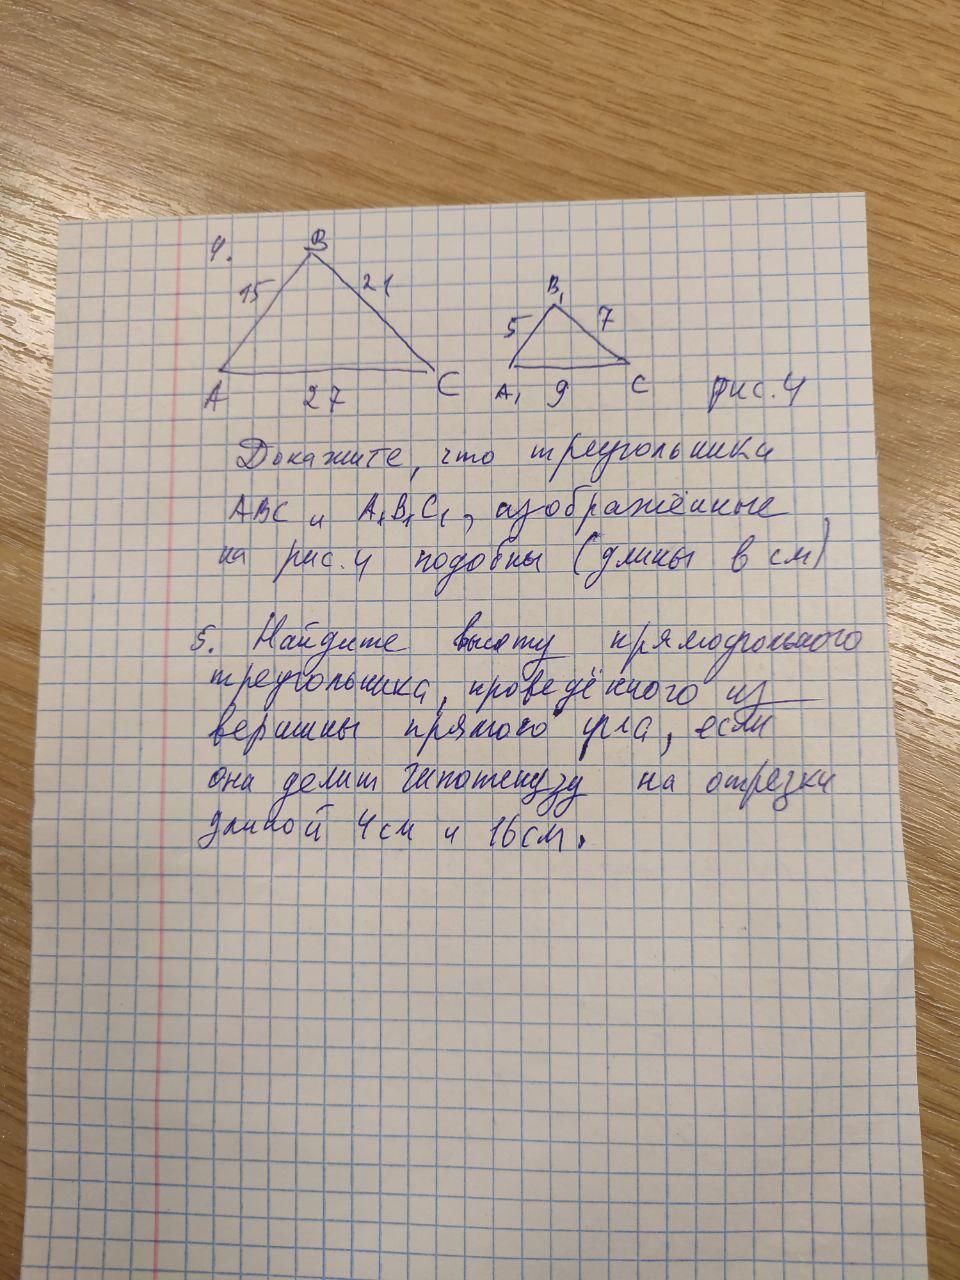 4.
B
15
21
A
27
C
B₁
5
7
A₁
9
C
рис. 4
Докажите, что треугольники
ABC и A₁B₁C₁, изображённые
на рис. 4 подобны (длины в см)
5. Найдите высоту прямоугольного
треугольника, проведённого из
вершины прямого угла, если
она делит гипотенузу на отрезки
длиной 4см и 16см.